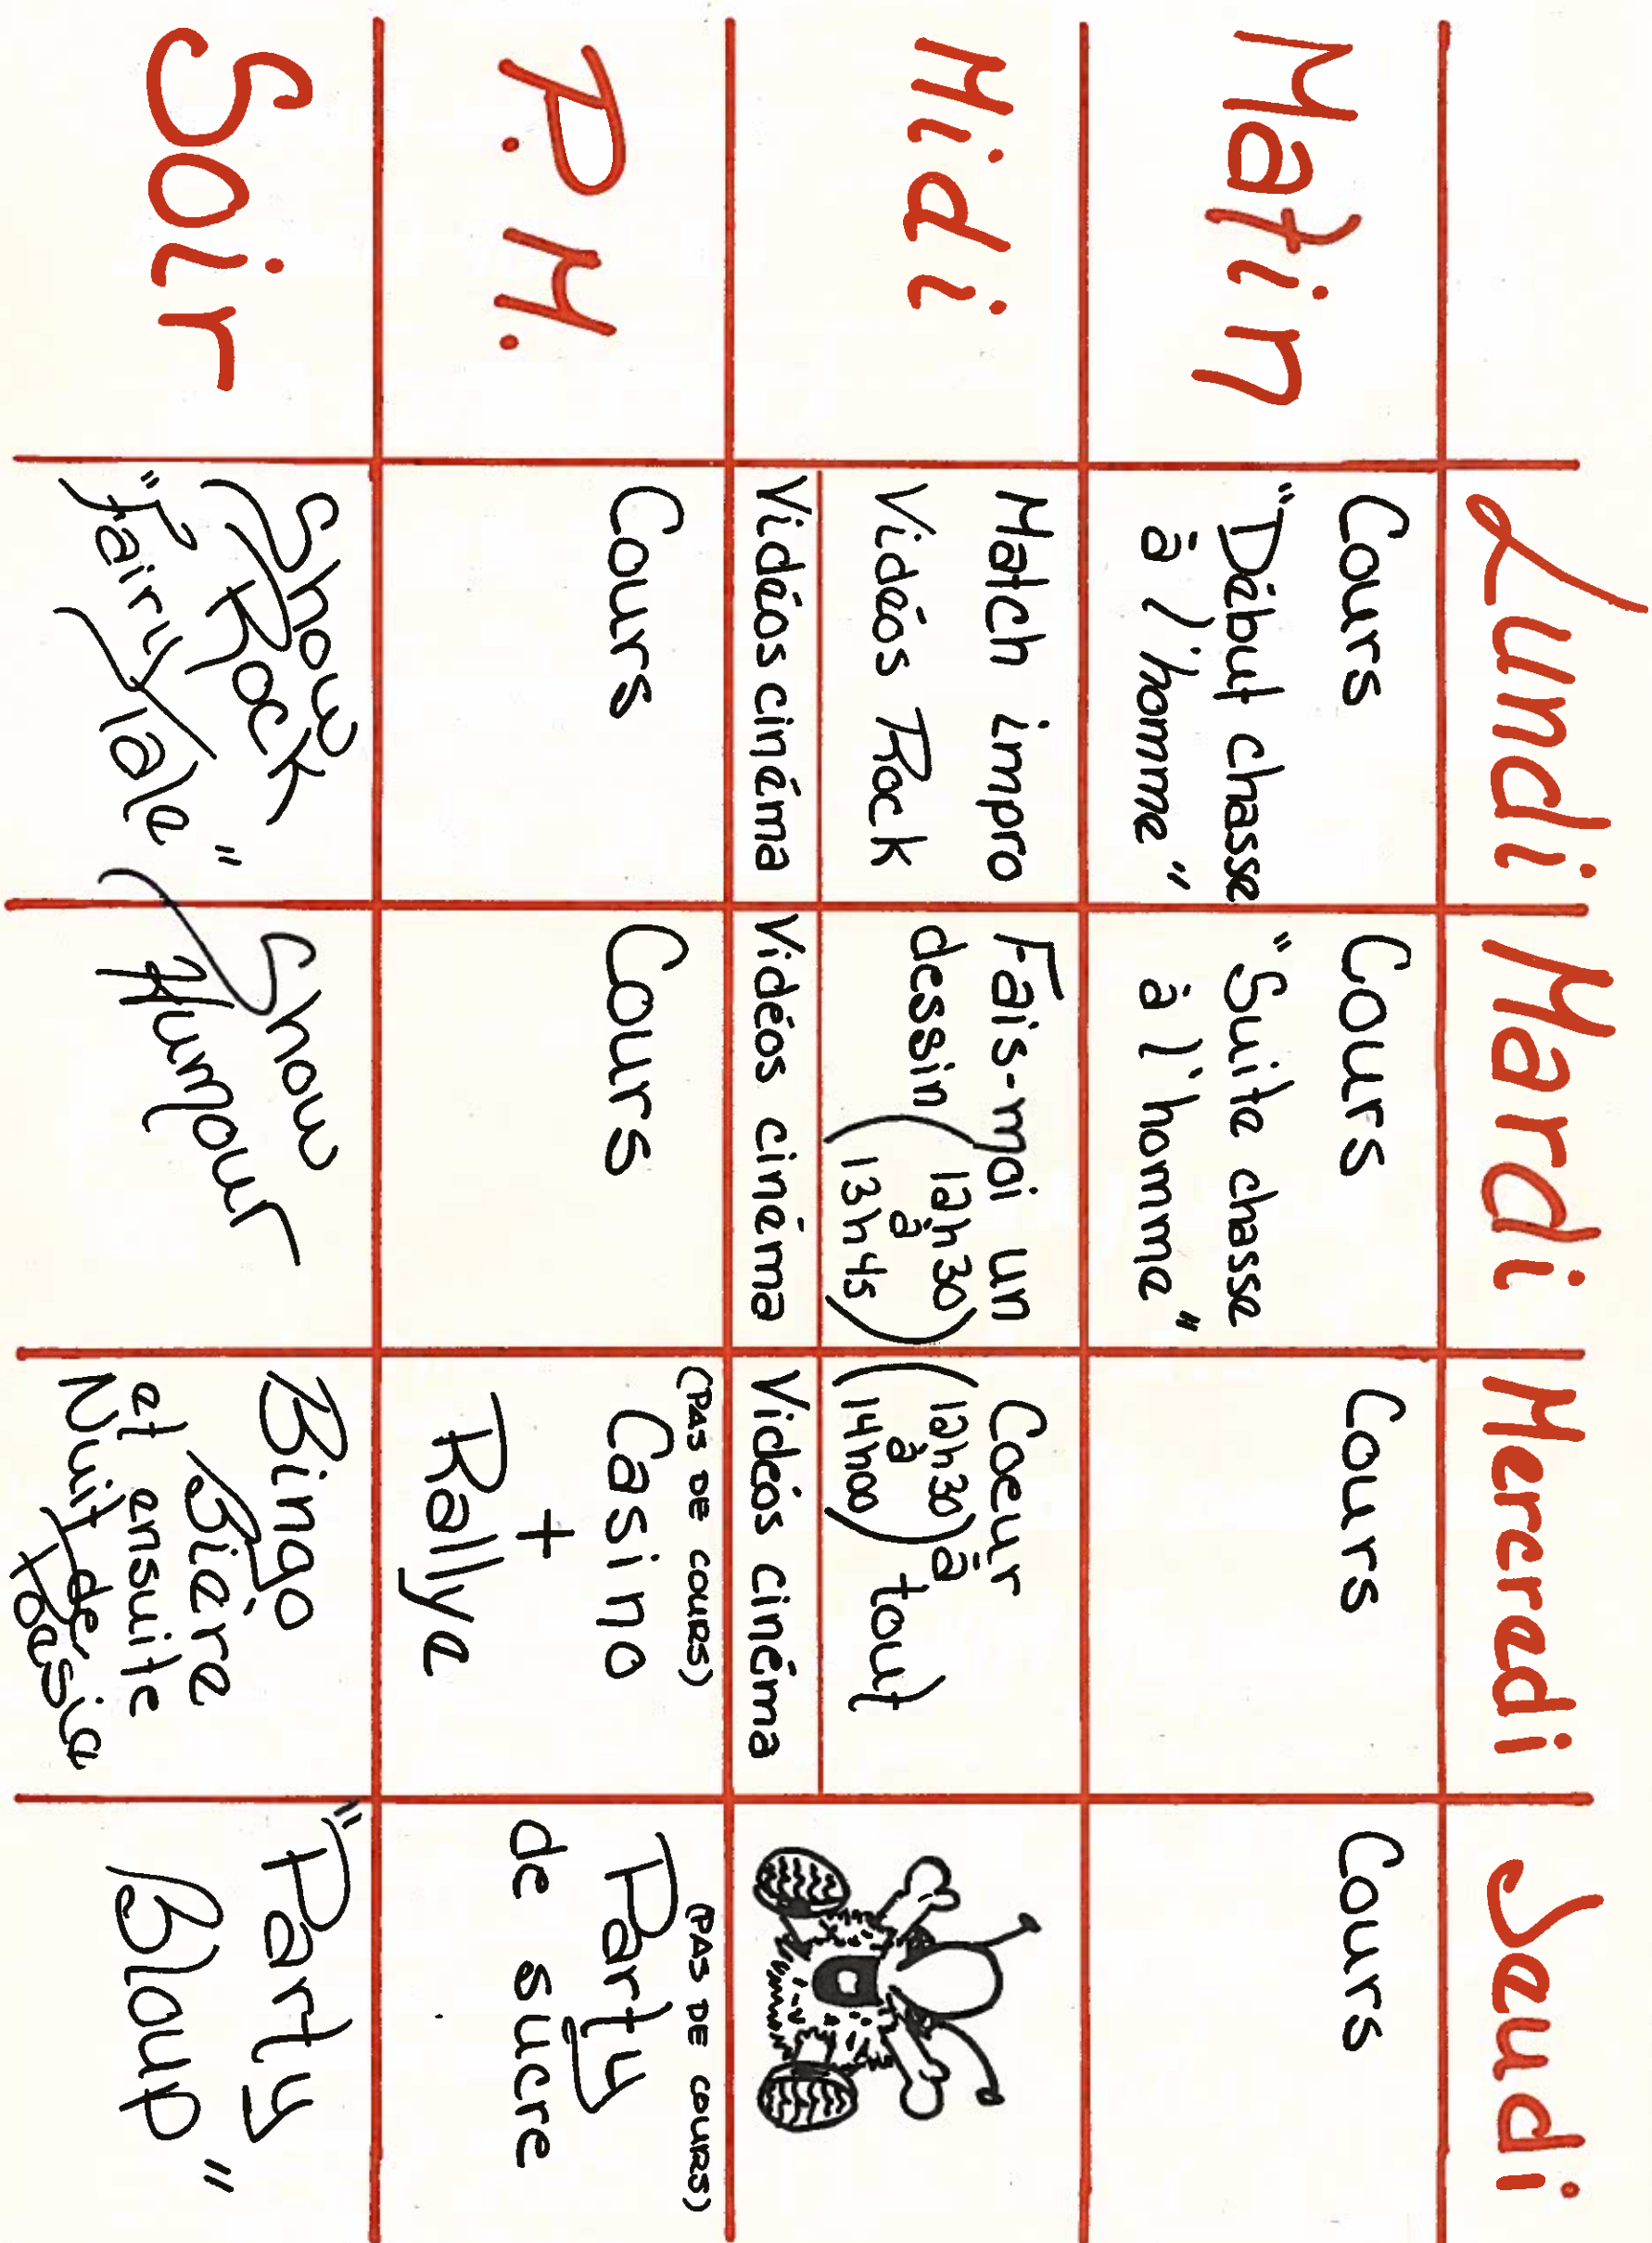 Lundi Mardi Mercredi Jeudi
Matin
Cours
"Début chasse
à l'homme"
Cours
"Suite chasse
à l'homme"
Cours
Cours
Midi
Match impro
Vidéos Rock
Vidéos cinéma
Fais-moi un
dessin (12h30
à
13h45)
Vidéos cinéma
Coeur
(12h30 à
à tout
14h00)
Vidéos cinéma
P.M.
Cours
Cours
(PAS DE COURS)
Casino
+
Rallye
(PAS DE COURS)
Party
de sucre
Soir
Show
Rock
"Fairy Tale"
Show
Humour
Bingo
Bière
et ensuite
Nuit de
Poésie
"Party
Bloup"